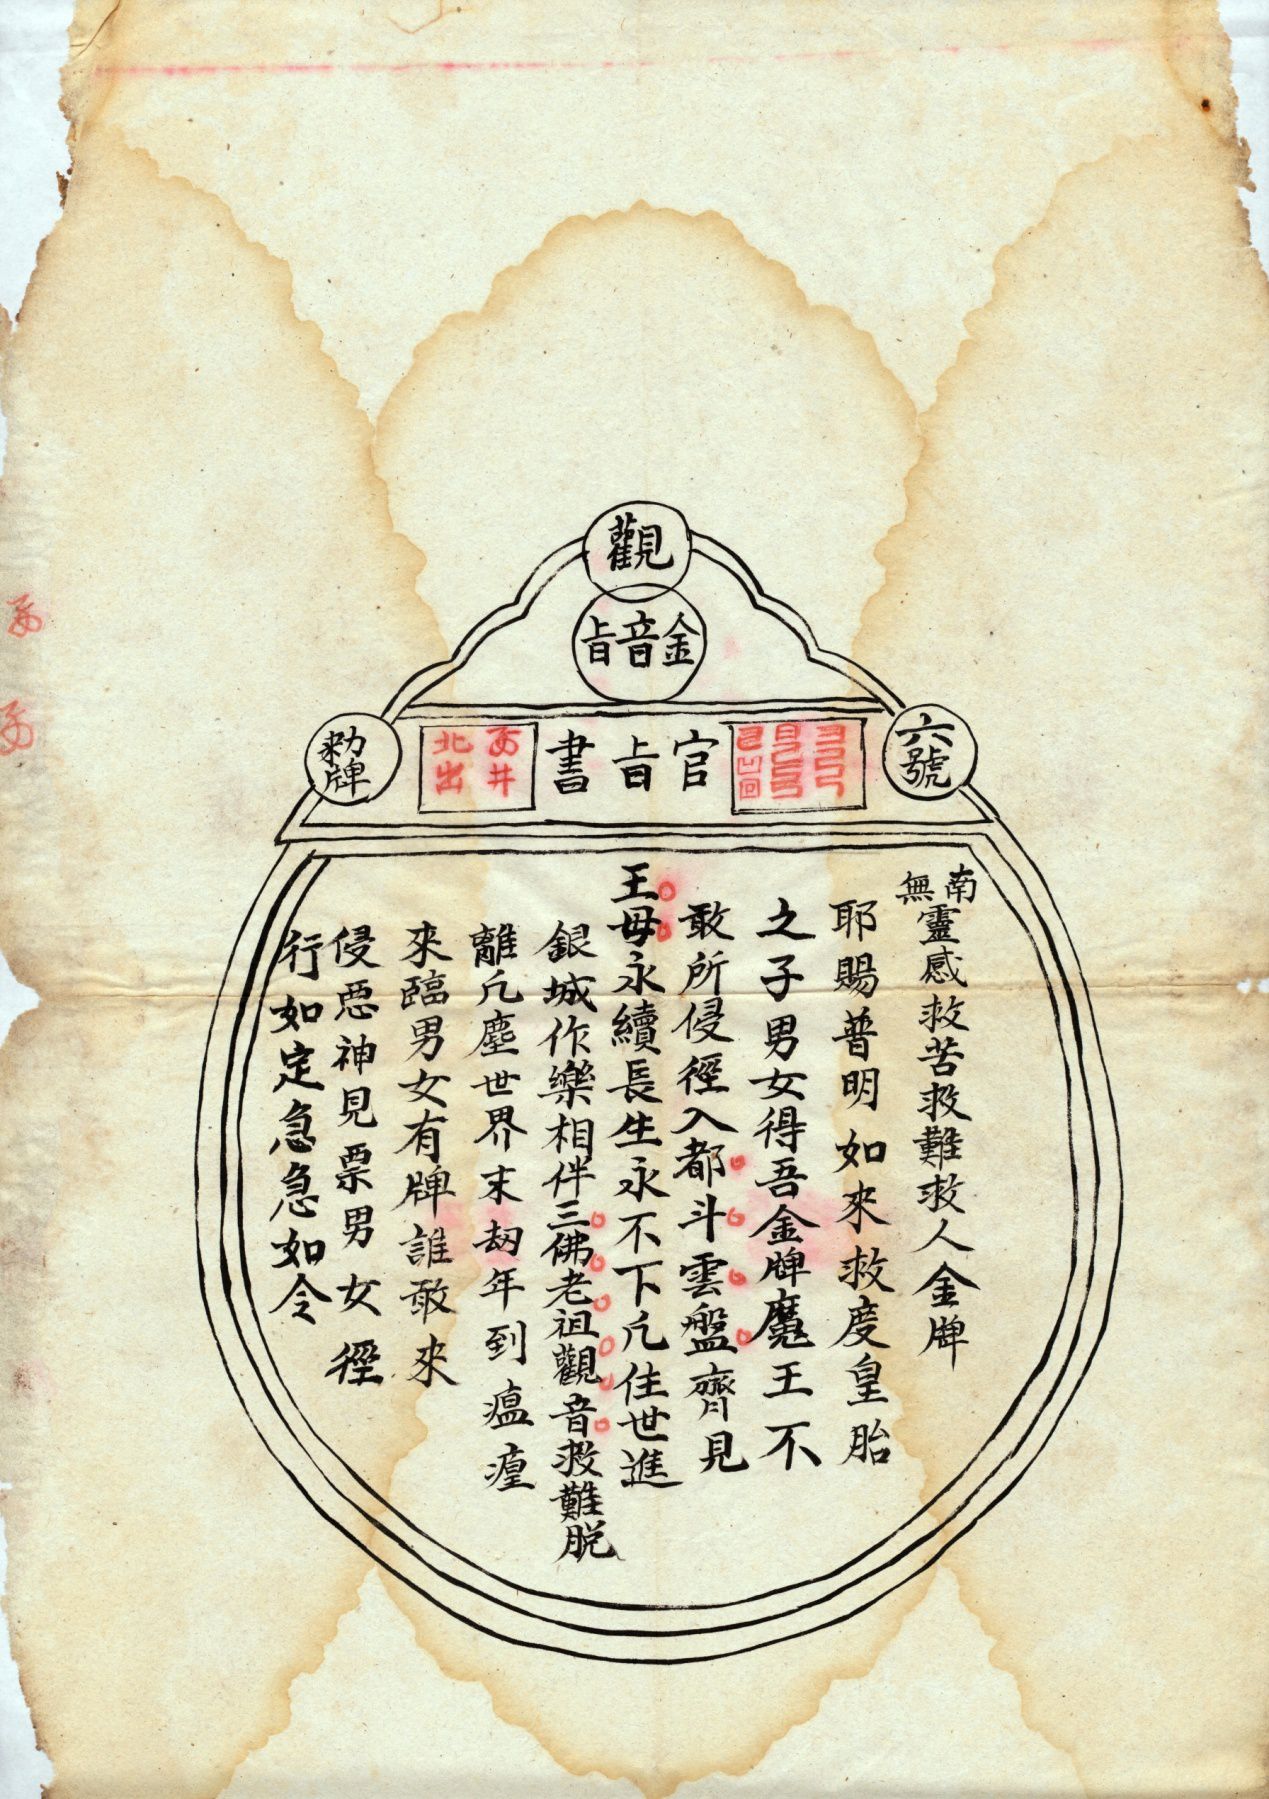 觀
金音旨
六號
官旨書
勅牌
北井出
南無靈感救苦救難救人金牌
耶賜普明如來救度皇胎
之子男女得吾金牌魔王不
敢所侵徑入都斗雲盤齊見
王母永續長生永不下凢住世進
銀城作樂相伴三佛老祖觀音救難脱
離凢塵世界末刼年到瘟瘽
來臨男女有牌誰敢來
侵惡神見票男女徑
行如定急急如令